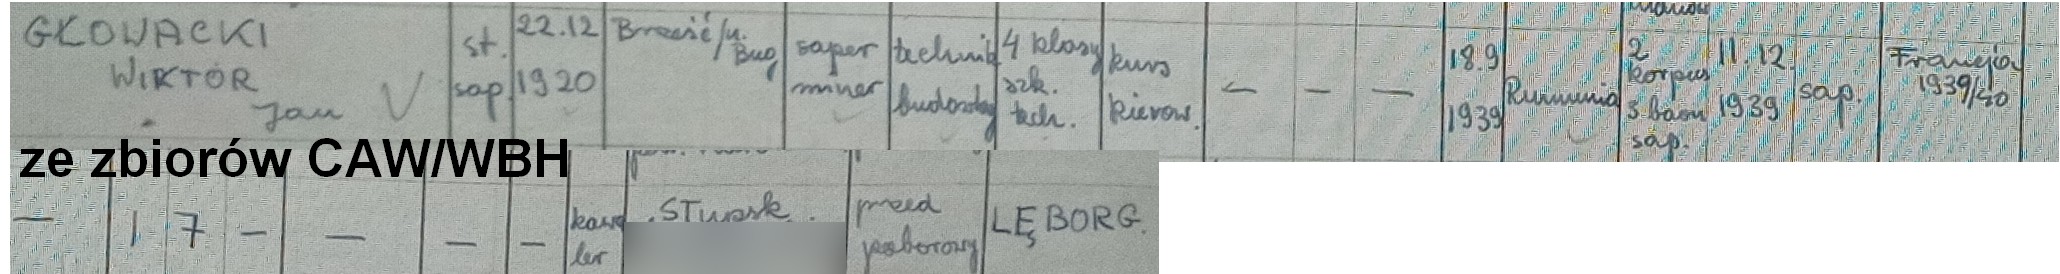 GŁOWACKI
WIKTOR
Jan
st.
sap.
22.12
1920
Brześć/n.
Bug
saper
miner
technik
budowlany
4 klasy
szk.
tech.
kurs
kierow.
— — —
18.9
1939
Rumunia
2
korpus
3 baon
sap.
11.12.
1939
sap.
Francja
1939/40
ze zbiorów CAW/WBH
— 1 7 — — — —
kawa
ler
Słupsk
przed
poborowy
LĘBORG.